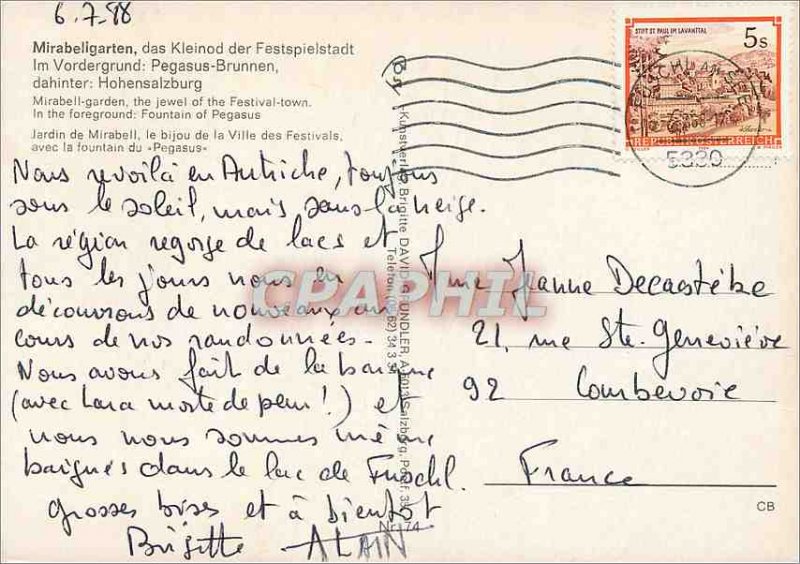 6.7.88
Mirabellgarten, das Kleinod der Festspielstadt
Im Vordergrund: Pegasus-Brunnen,
dahinter: Hohensalzburg
Mirabell-garden, the jewel of the Festival-town.
In the foreground: Fountain of Pegasus
Jardin de Mirabell, le bijou de la Ville des Festivals,
avec la fountain du «Pegasus»
Nous revoilà en Autriche, toujours
sous le soleil, mais sans la neige.
La région regorge de lacs et
tous les jours nous en
découvrons de nouveaux au
cours de nos randonnées.
Nous avons fait de la barque
(avec Lara morte de peur!) et
nous nous sommes même
baignés dans le lac de Fuschl.
Grosses bises et à bientôt
Brigitte ALAIN
Kunstverlag Brigitte DAVID-GRÜNDLER, A-5013 Salzburg, Postf. 
Telefon (0 62) 34 3
Nr. 74
STIFT ST. PAUL IM LAVANTTAL
5s
REPUBLIK ÖSTERREICH
FUSCHL AM SEE
5330
Mme Jeanne Decastebe
21, rue Ste-Geneviève
92 Courbevoie
France
CB
CPAPHIL